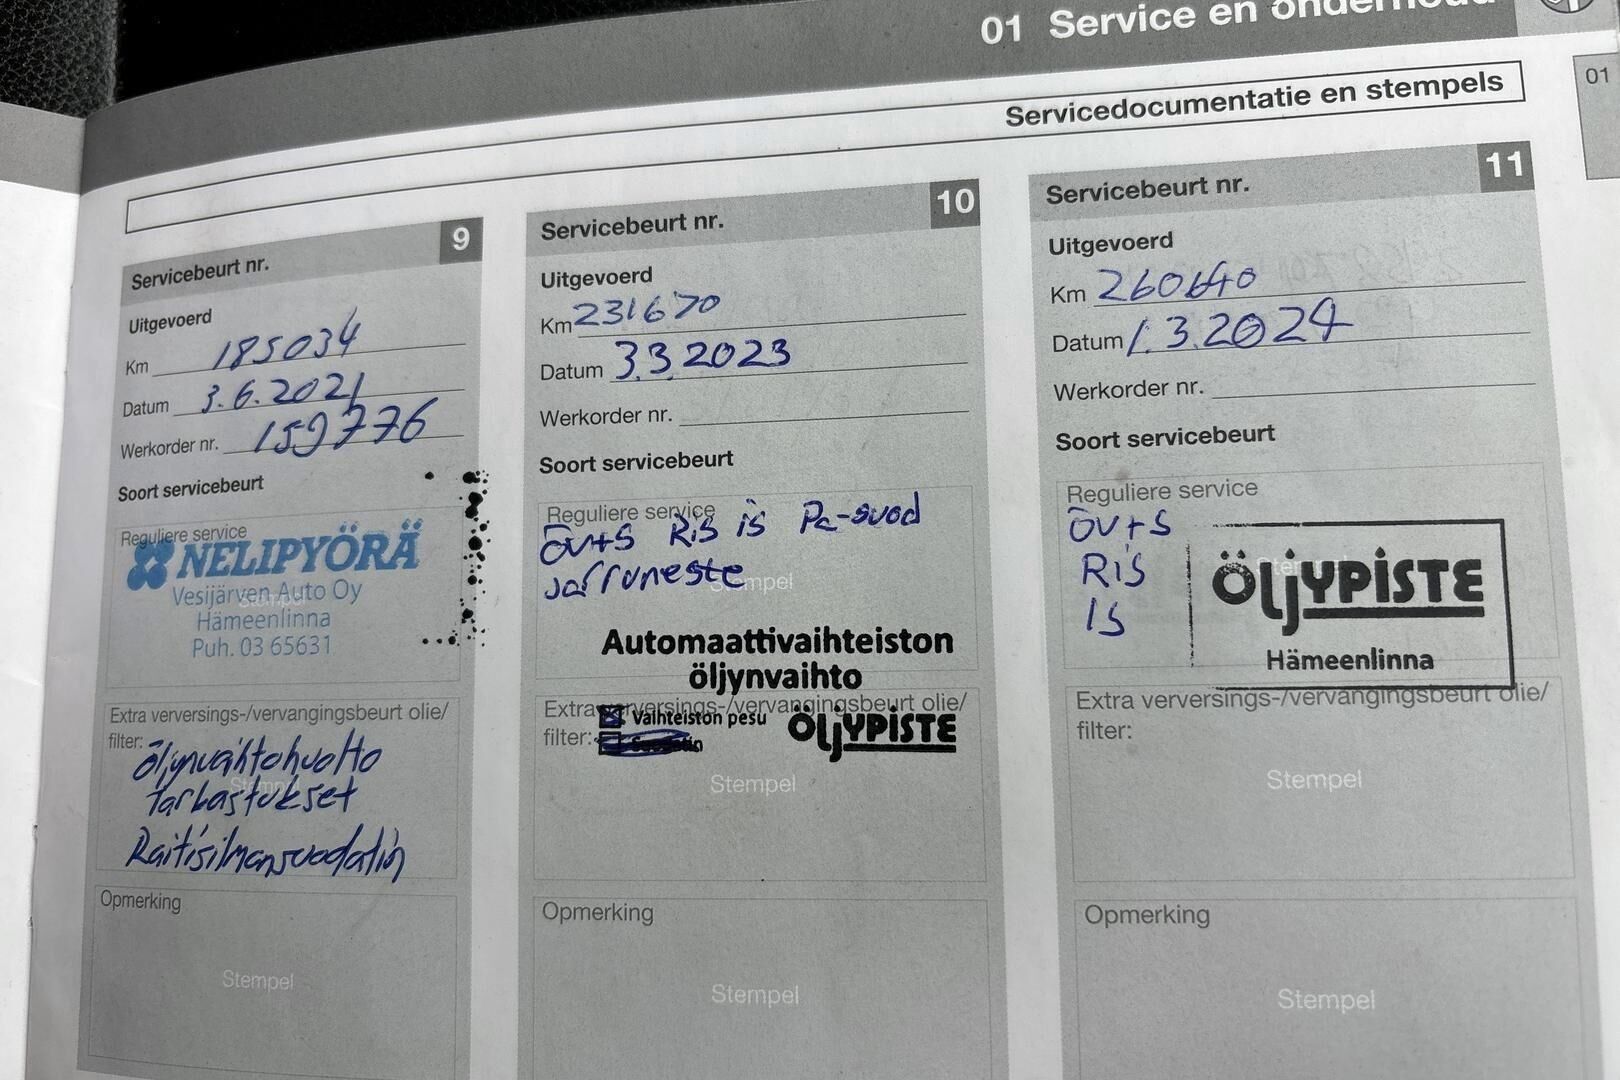 01 Service en onderhoud
01
Servicedocumentatie en stempels
Servicebeurt nr. 9
Uitgevoerd
Km 185034
Datum 3.6.2021
Werkorder nr. 159776
Soort servicebeurt
Reguliere service
NELIPYÖRÄ
Vesijärven Auto Oy
Stempel
Hämeenlinna
Puh. 03 65631
Extra verversings-/vervangingsbeurt olie/
filter:
öljynvaihtohuolto
Stempel
Tarkastukset
Raitisilmansuodatin
Opmerking
Stempel
Servicebeurt nr. 10
Uitgevoerd
Km 231670
Datum 3.3.2023
Werkorder nr.
Soort servicebeurt
Reguliere service
öv+s Ris is Pa-suod
Jarruneste
Stempel
Automaattivaihteiston
öljynvaihto
Extra verversings-/vervangingsbeurt olie/
filter:
Vaihteiston pesu
Suodatin
ÖLJYPISTE
Stempel
Opmerking
Stempel
Servicebeurt nr. 11
Uitgevoerd
Km 260640
Datum 1.3.2024
Werkorder nr.
Soort servicebeurt
Reguliere service
öv+s
Ris
Is
Stempel
ÖLJYPISTE
Hämeenlinna
Extra verversings-/vervangingsbeurt olie/
filter:
Stempel
Opmerking
Stempel